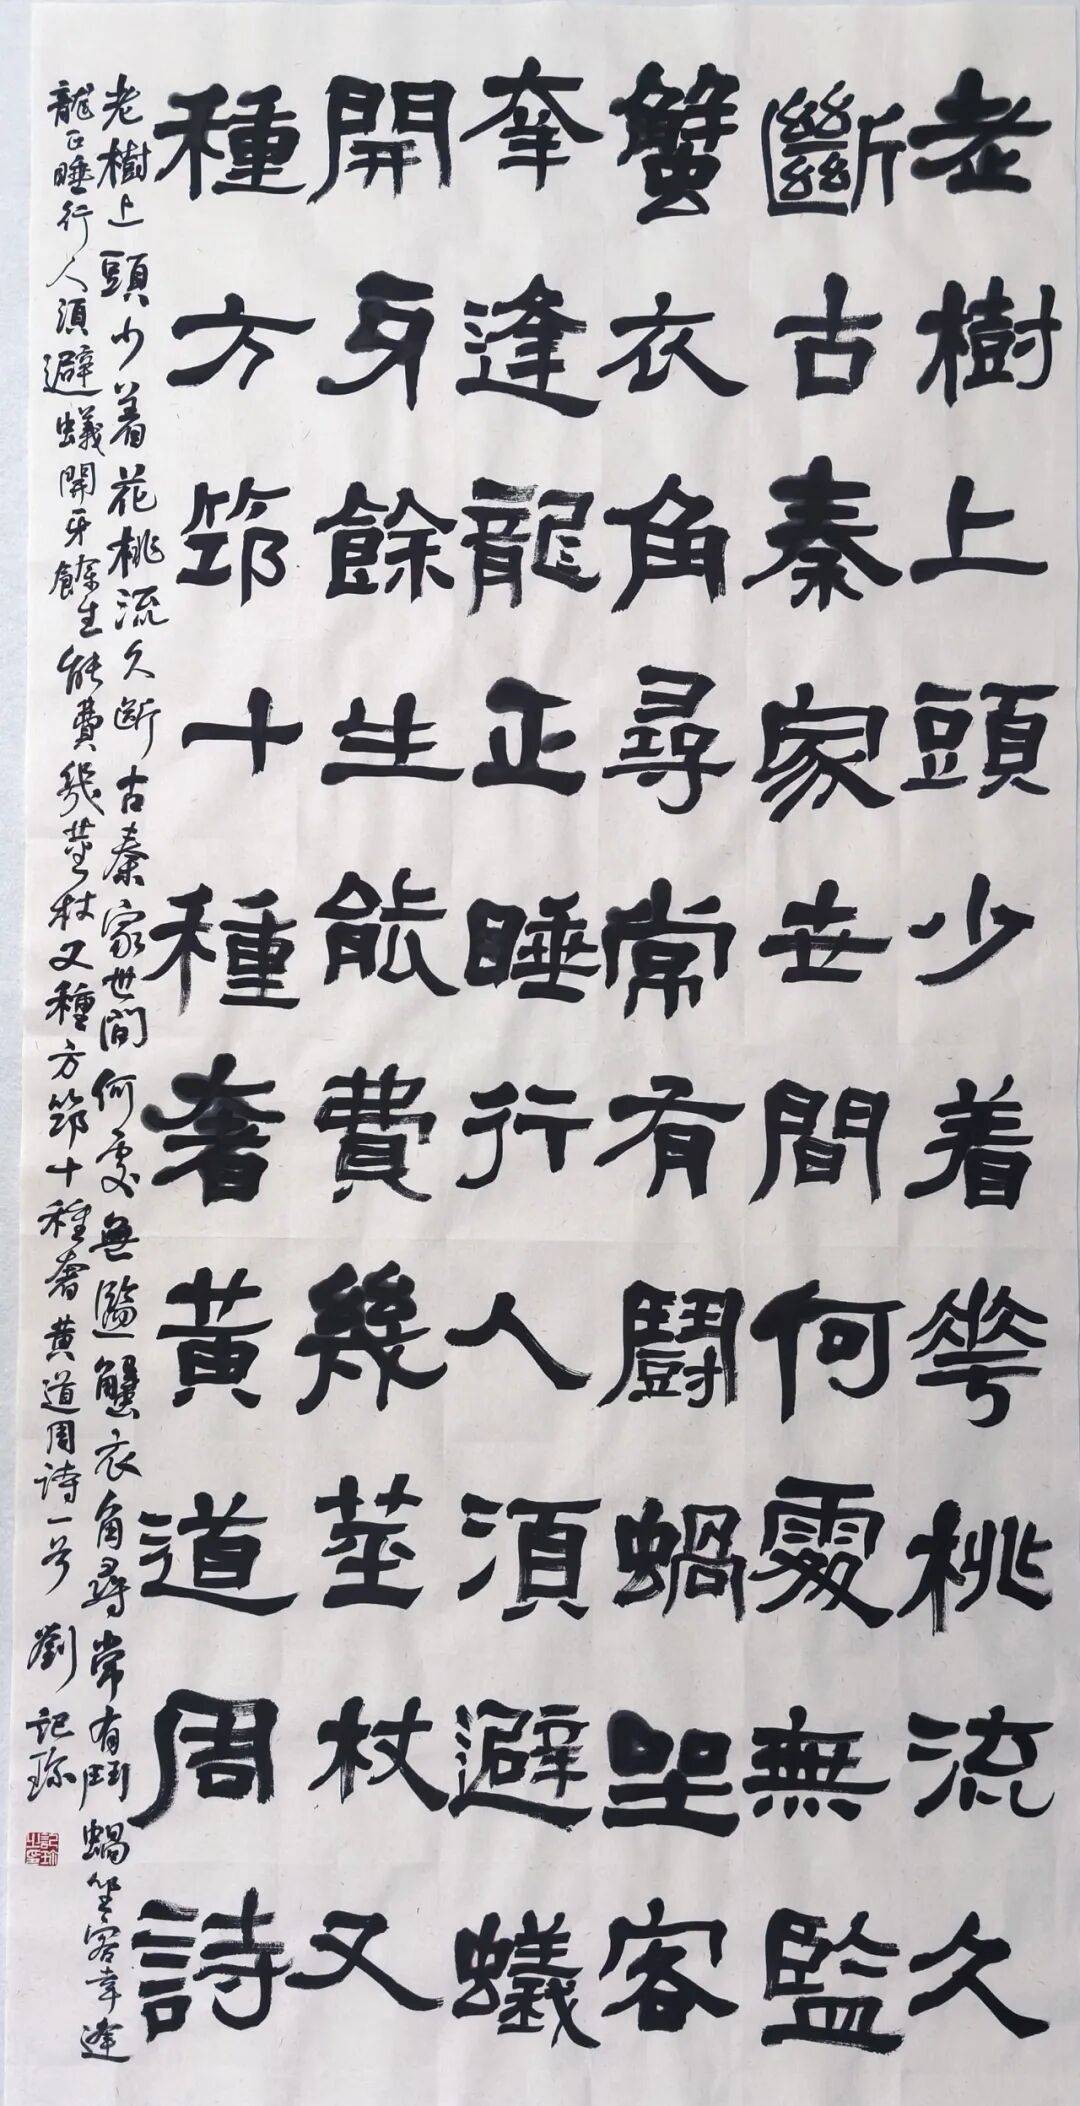 老樹上頭少着花桃流久
斷古秦家世間何處無監
蟹衣角尋常有鬪蝸坐客
幸逢龍正睡行人須避蟻
開牙餘生能費幾莖杖又
種方筇十種奢黃道周詩
老樹上頭少着花桃流久斷古秦家世間何處無監蟹衣角尋常有鬥蝸坐客幸逢
龍正睡行人須避蟻開牙餘生能費幾莖杖又種方筇十種奢黃道周詩一首 劉記珍